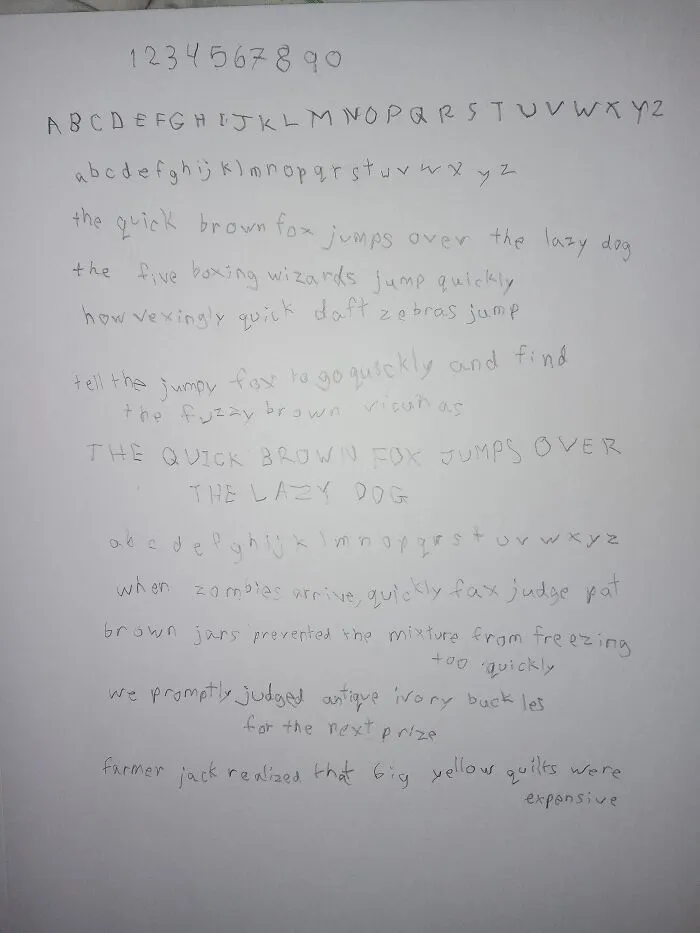 1234567890
ABCDEFGHIJKLMNOPQRSTUVWXYZ
abcdefghijklmnopqrstuvwxyz
the quick brown fox jumps over the lazy dog
the five boxing wizards jump quickly
how vexingly quick daft zebras jump
tell the jumpy fox to go quickly and find
the fuzzy brown vicunas
THE QUICK BROWN FOX JUMPS OVER
THE LAZY DOG
abcdefghijklmnopqrstuvwxyz
when zombies arrive, quickly fax judge pat
brown jars prevented the mixture from freezing
too quickly
we promptly judged antique ivory buckles
for the next prize
farmer jack realized that big yellow quilts were
expensive